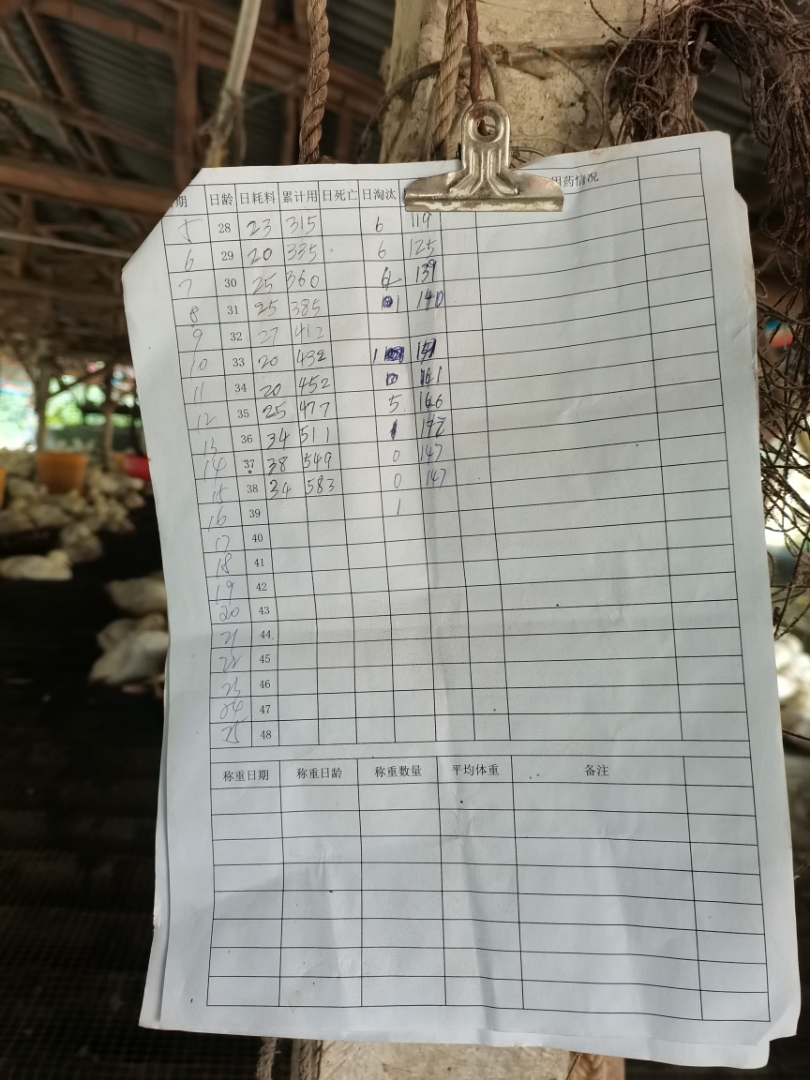 期 日龄 日耗料 累计用 日死亡 日淘汰 用药情况
5 28 23 315 6 119
6 29 20 335 6 125
7 30 25 360 139
8 31 25 385 1 140
9 32 27 412
10 33 20 432 1
11 34 20 452 0
12 35 25 477 5 146
13 36 34 511
14 37 38 549 0 147
15 38 34 583 0 147
16 39 1
17 40
18 41
19 42
20 43
21 44
22 45
23 46
24 47
25 48
称重日期 称重日龄 称重数量 平均体重 备注